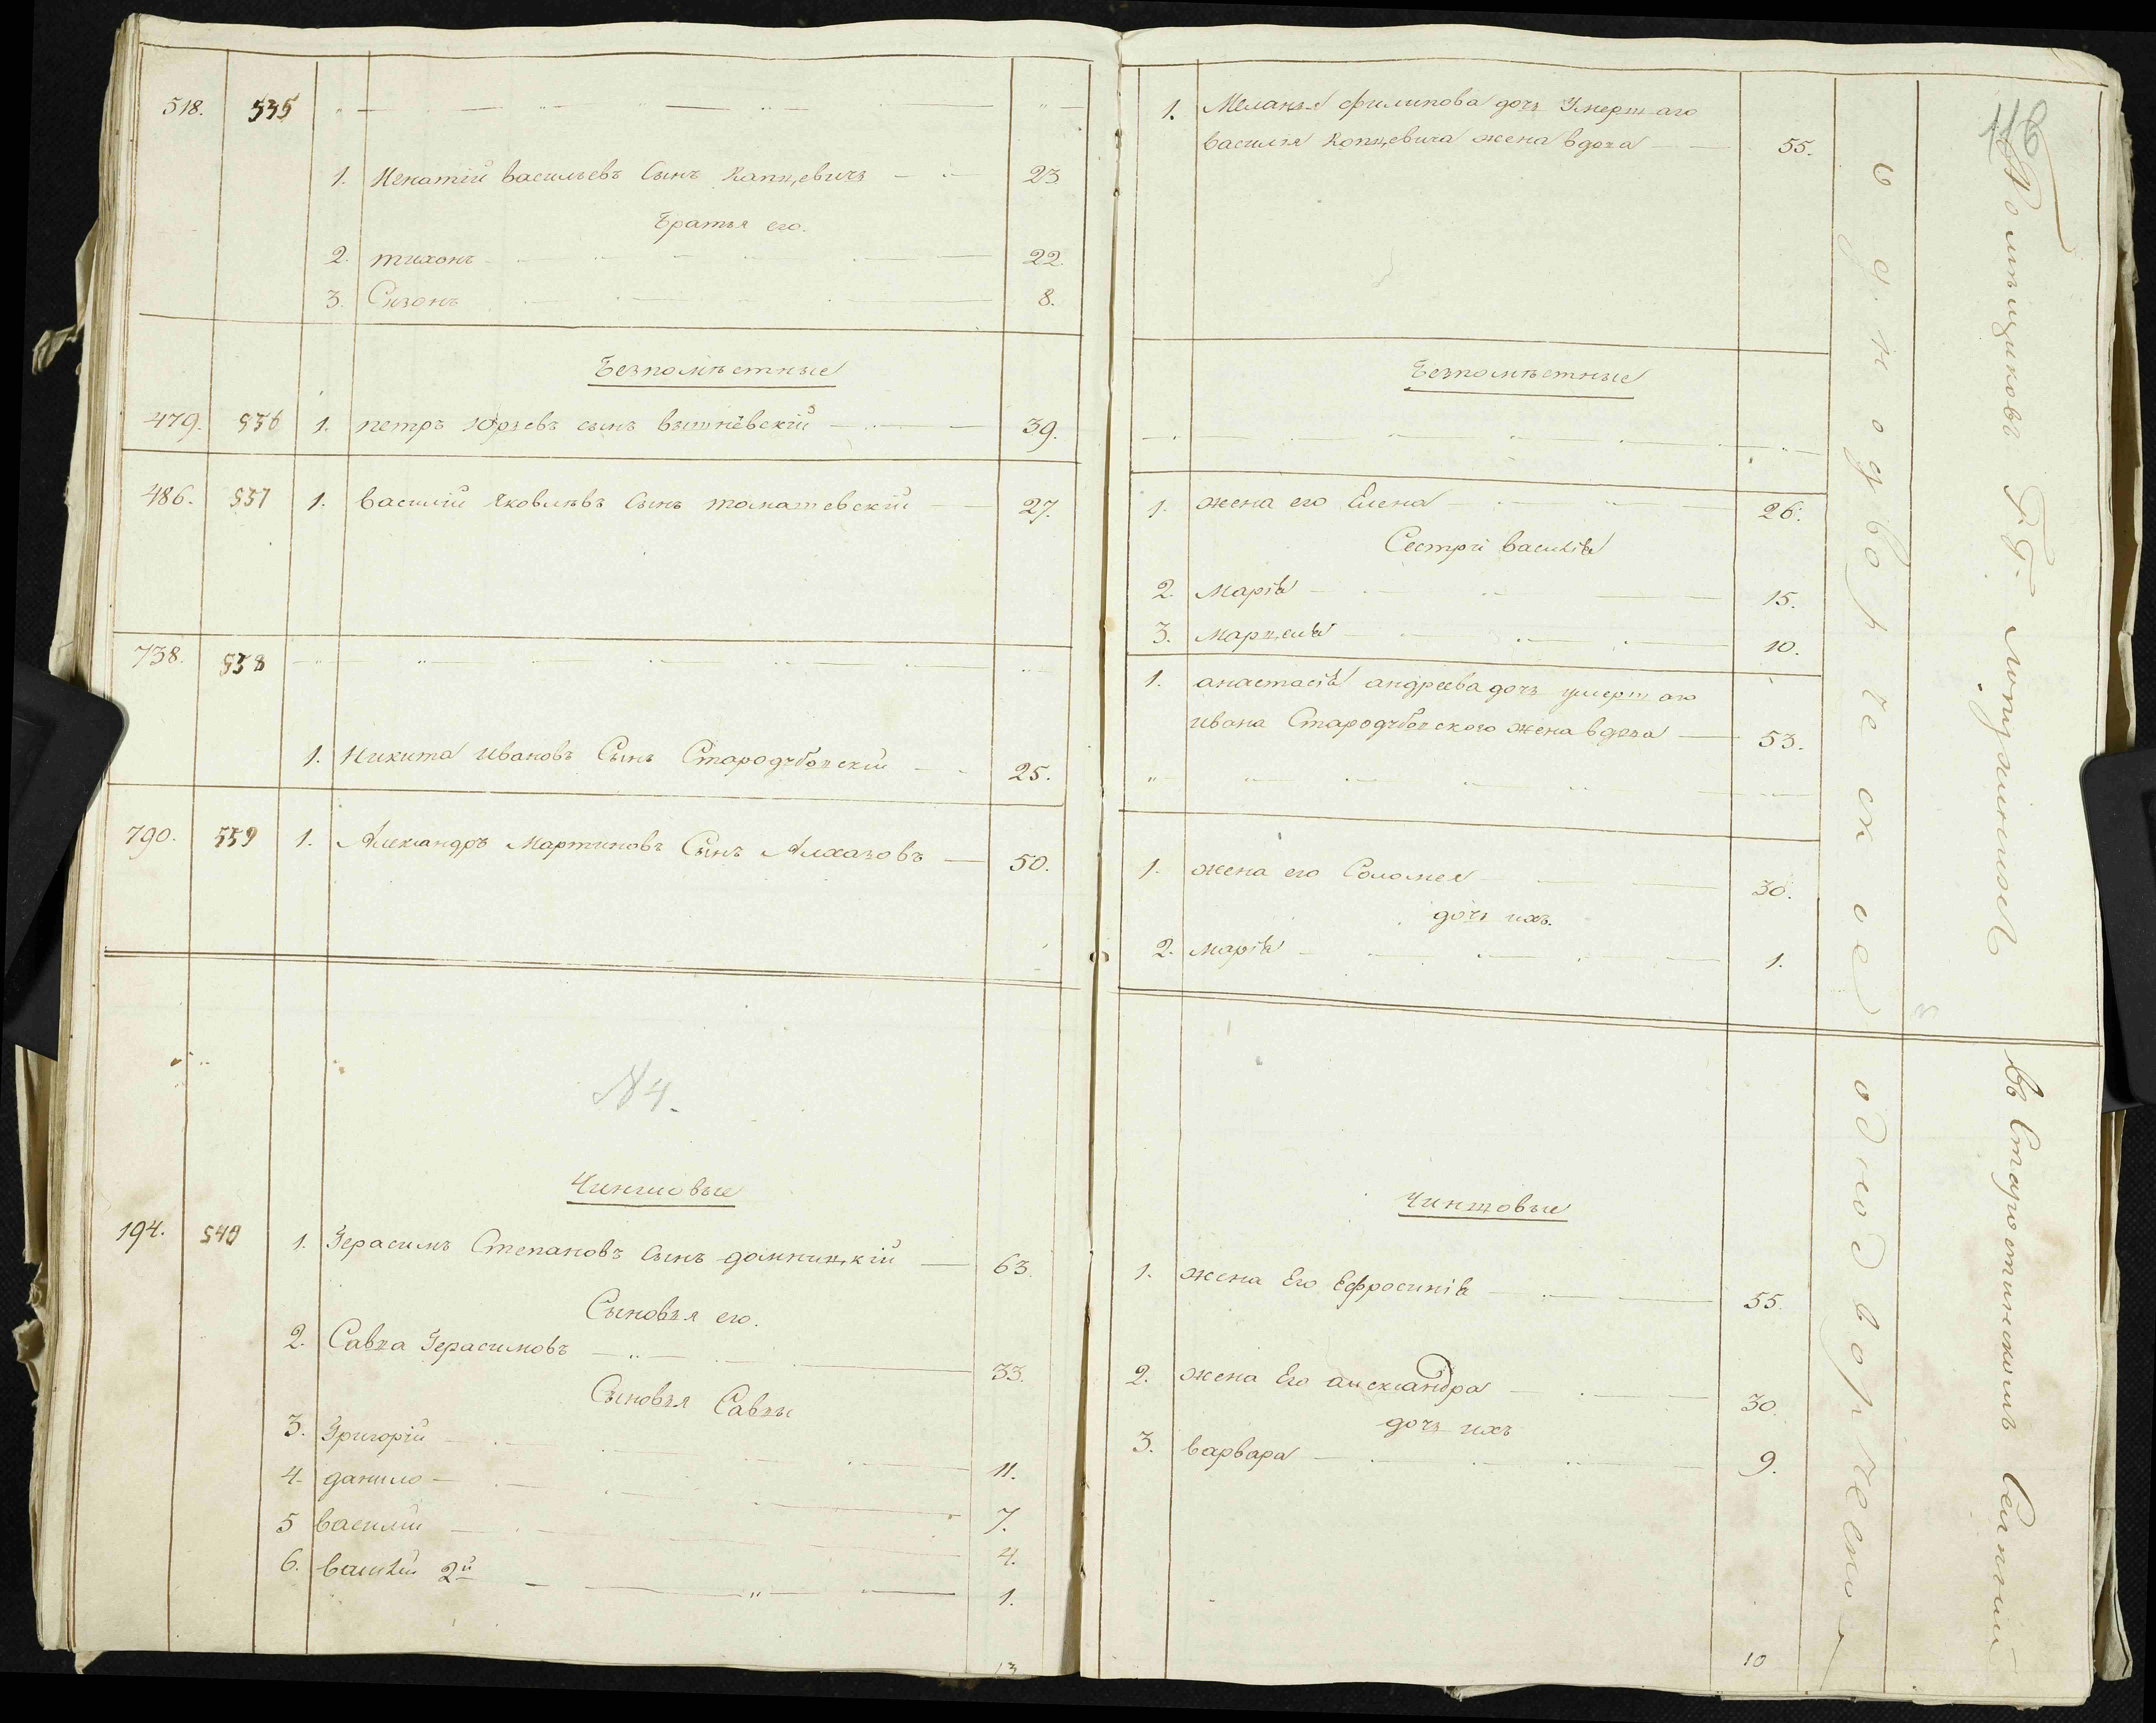 518. 535
1. Игнатій васильевъ Сынъ Капцевичъ 23
братья его.
2. тихонъ 22.
3. Сизонъ 8.
Безпомѣстные
479. 536 1. петръ юрьевъ сынъ вышневскій 39.
486. 537 1. василій Яковлѣвъ Сынъ томашевскій 27.
738. 538
1. Никита Ивановъ Сынъ Стародубовскій 25.
790. 539 1. Александръ Мартиновъ Сынъ Алхазовъ 50.
N 4.
Чиншовые
194. 540 1. Герасимъ Степановъ Сынъ домницкій 63.
Сыновья его.
2. Савва Герасимовъ 33.
Сыновья Саввы
3. Григорій 11.
4. данило 7.
5 василій 4.
6. василій 2й 1.
13
116
1. Меланья филипова дочь Умершаго
василія Копцевича жена вдова 55.
Безпомѣстные
1. жена его Елена 26.
Сестри василія
2. Марія 15.
3. Марцеля 10.
1. анастасія андреева дочь умершаго
ивана Стародубовского жена вдова 53.
1. жена его Соломея 30.
дочь ихъ.
2. марія 1.
Чиншовые
1. жена Его Ефросинія 55.
2. жена Его александра 30.
дочь ихъ
3. варвара 9.
10
однодворческое
однодворческо
Помѣщиковъ Г. Г.
въ Старостинскомъ Селеніи